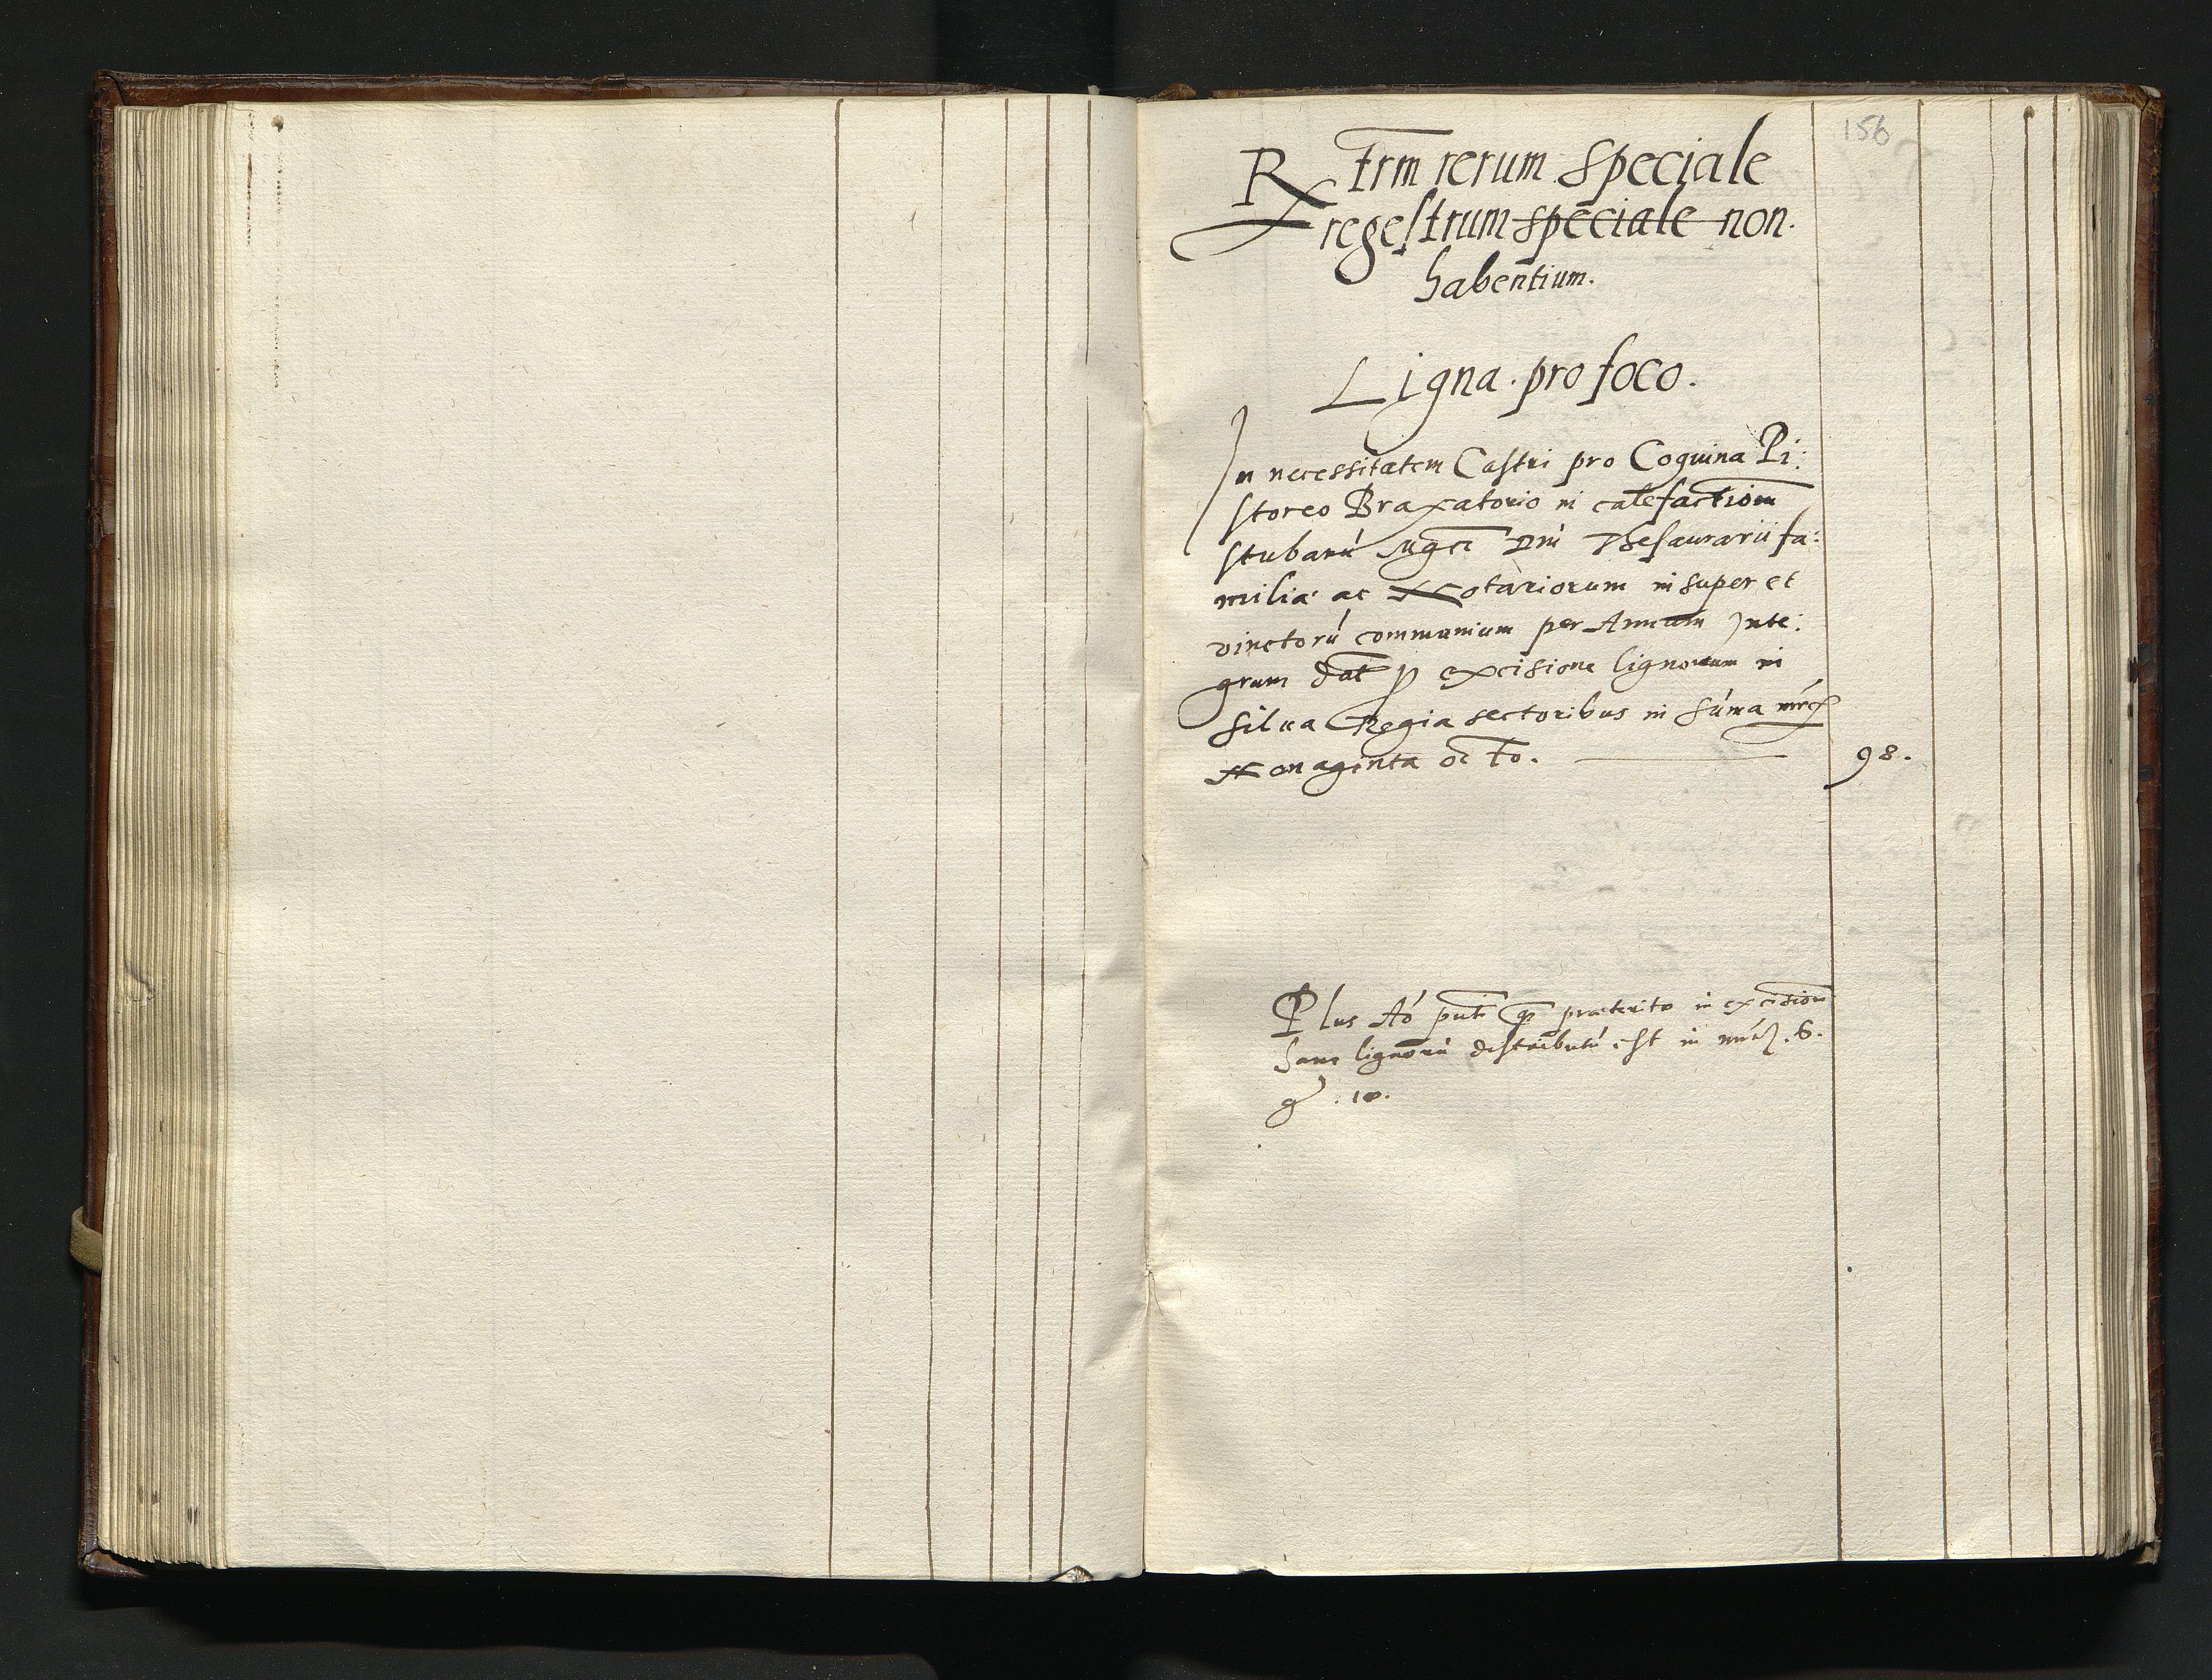 156
Rxtrm rerum speciale
regestrum speciale non
habentium.
Ligna pro foco.
In necessitatem Castri pro Coquina Pi:
storeo Braxatorio in calefactiom
stubarú Mgci Dni Thesaurarii fa:
milia ac Notariorum insuper et
vinctorú communium per Annum Inte:
grum dat p excisione lignorum in
silua Regia sectoribus in súma mrc
Nonaginta octo. 98.
Plus Aó pnti praeterito in excision
lignorú distributú est in mrc. 6.
g. 10.